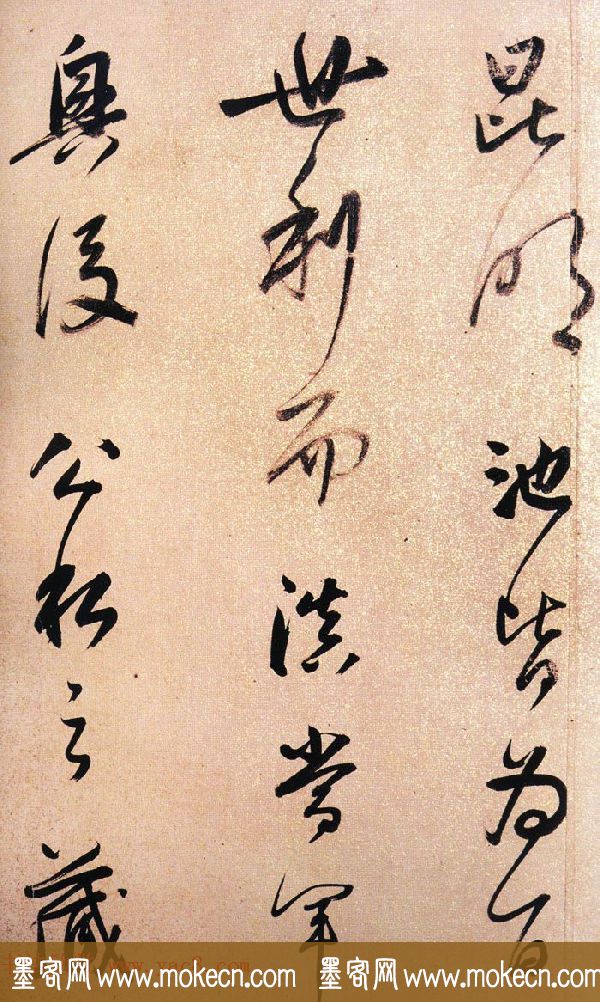 昆明池皆為百
世利而漢當軍
興後公私之藏
墨客网 www.mokecn.com 墨客网 www.mokecn.com